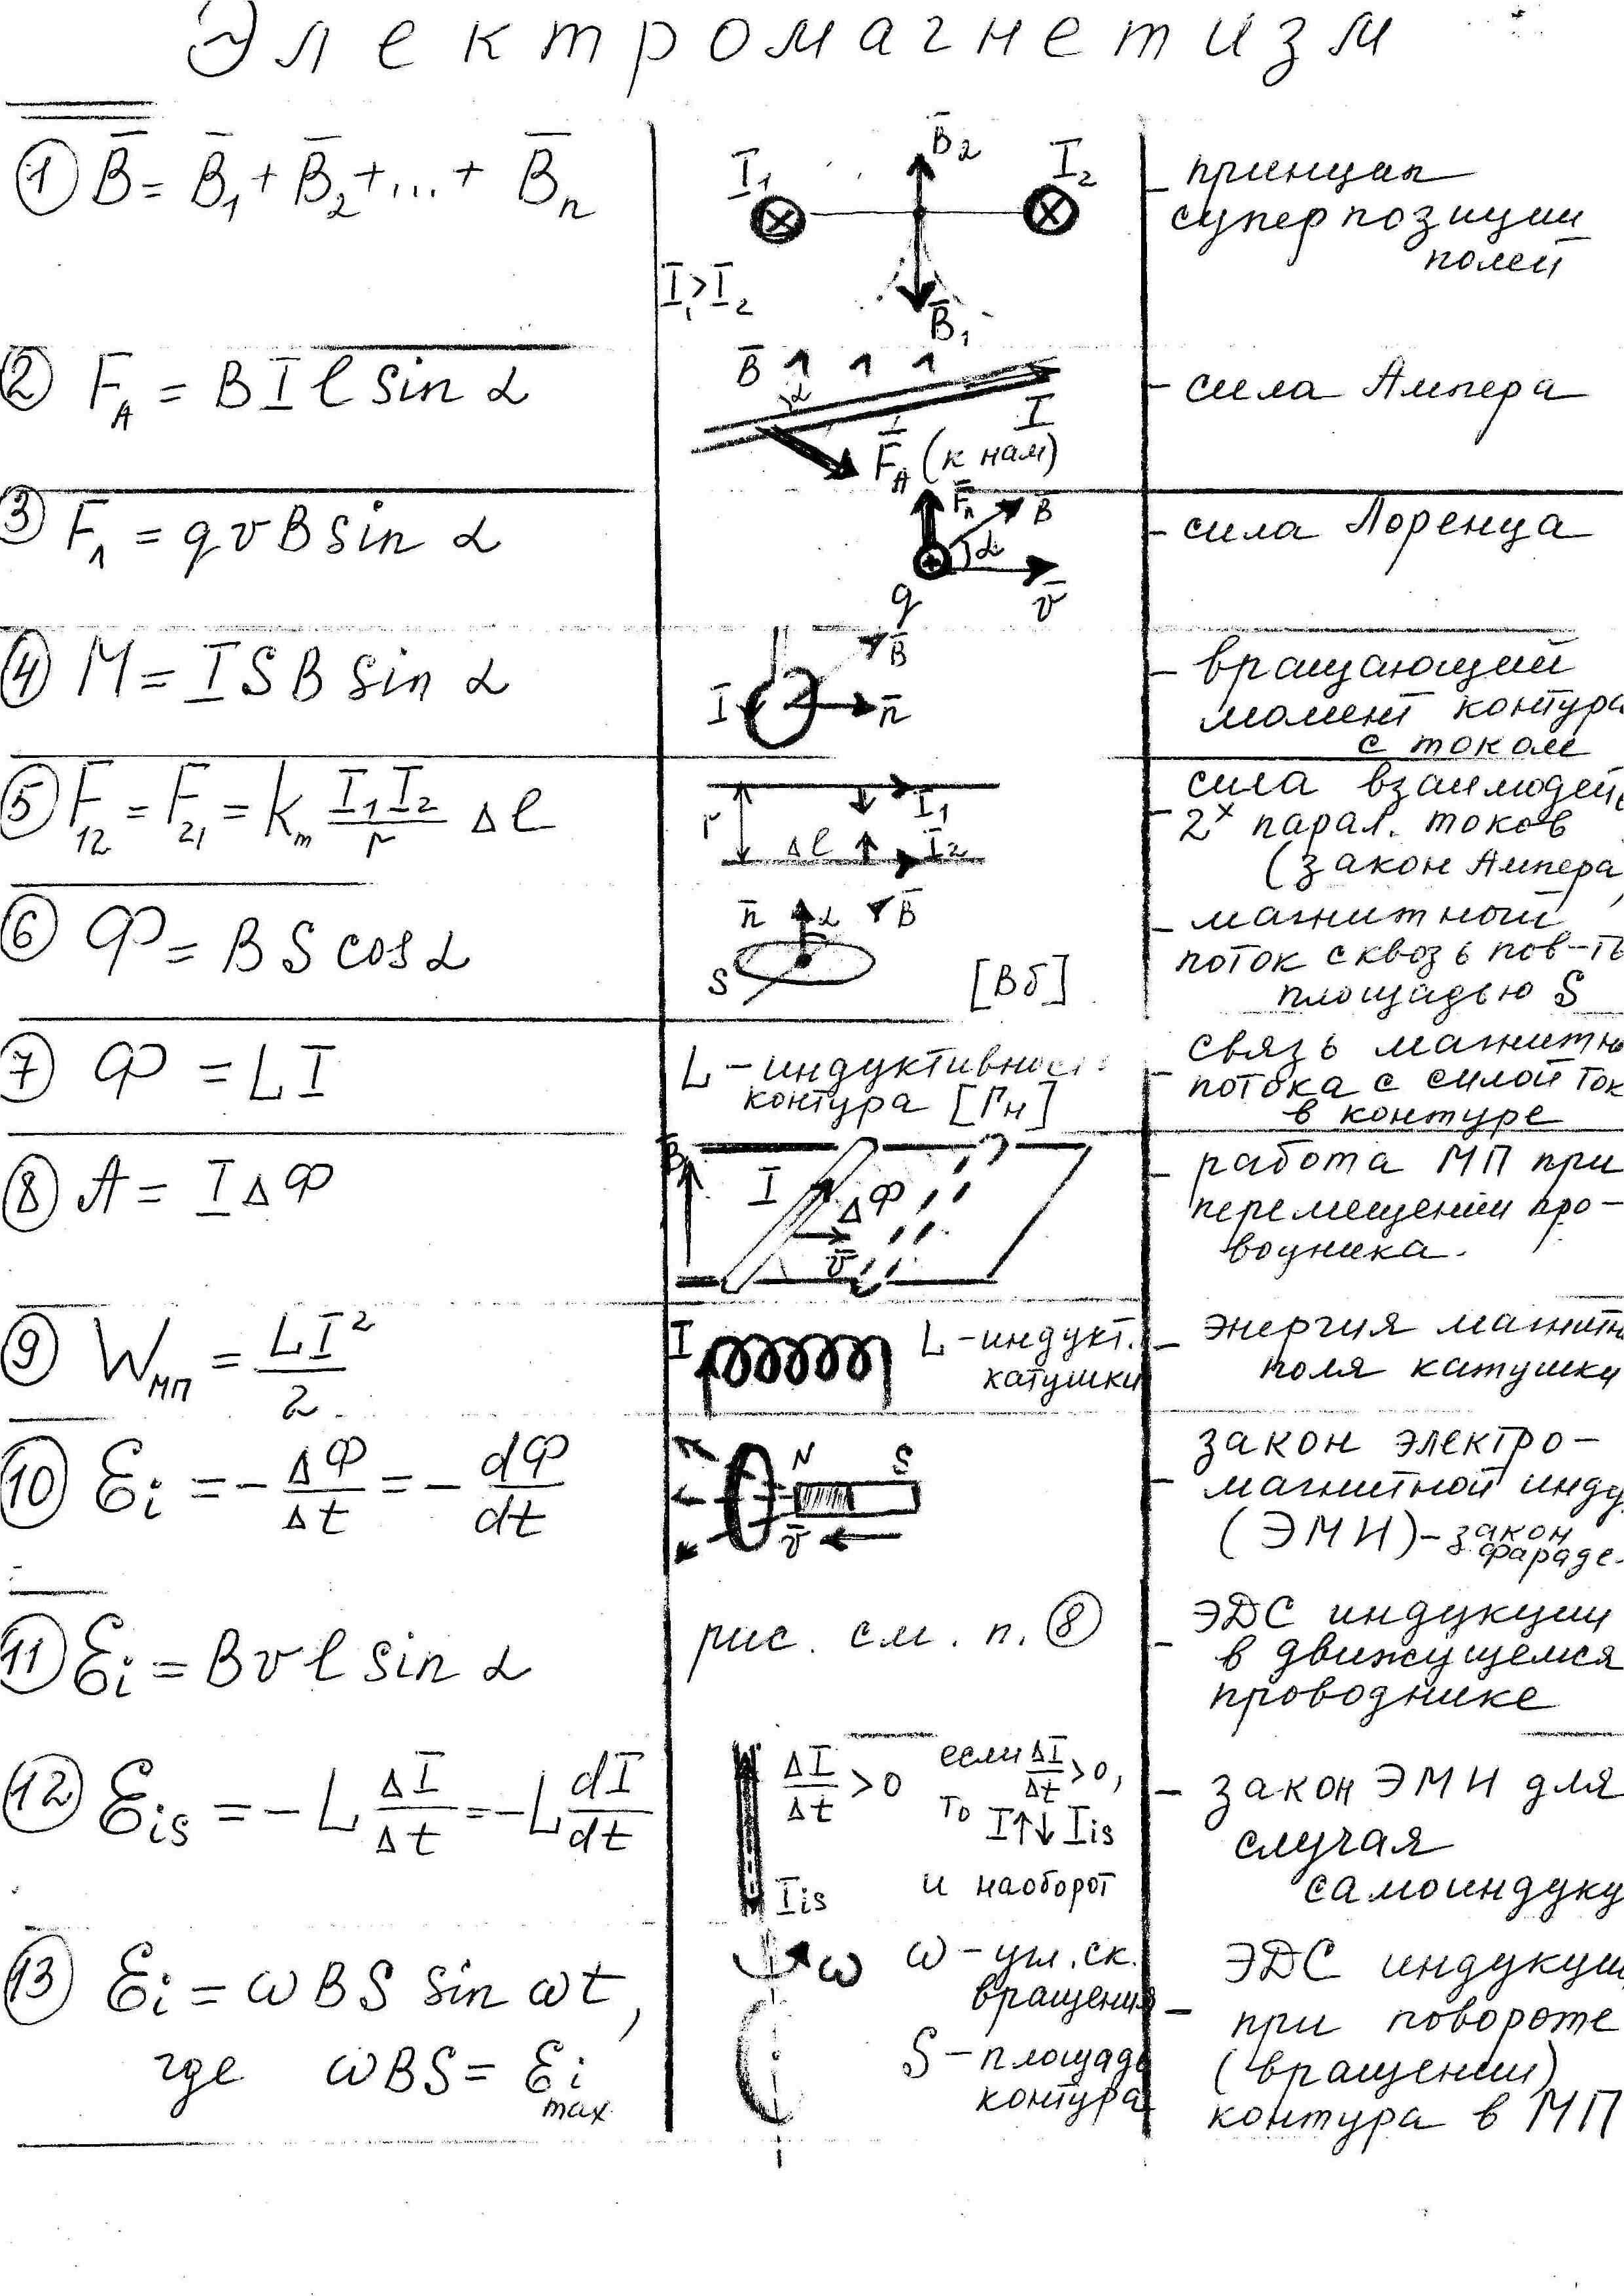 Электромагнетизм
① B̄ = B̄₁ + B̄₂ + ... + B̄ₙ
Ī₁ B̄₂ Ī₂
I₁ > I₂
B̄₁
– принцип
суперпозиции
полей
② F_A = B I l sin α
B̄ α I
F̄_A (к нам)
– сила Ампера
③ F_л = q v B sin α
F̄_л B̄ α
q v̄
– сила Лоренца
④ M = I S B sin α
B̄
I n̄
– вращающий
момент контура
с током
⑤ F₁₂ = F₂₁ = k_m I₁I₂/r Δl
r I₁
Δl I₂
сила взаимодей
– 2ˣ парал. токов
(закон Ампера
⑥ Ф = B S cos α
n̄ α B̄
S [Вб]
– магнитный
поток сквозь пов-ть
площадью S
⑦ Ф = L I
L – индуктивнос
контура [Гн]
связь магнитн
– потока с силой ток
в контуре
⑧ A = I Δ Ф
B̄ I ΔФ
v̄
– работа МП при
перемещении про-
водника.
⑨ W_МП = LI²/2
I L – индукт.
катушки
– энергия магнитн
поля катушки
⑩ ℰi = – ΔФ/Δt = – dФ/dt
N S
v̄
закон электро-
– магнитной инду
(ЭМИ) – закон
Фараде
⑪ ℰi = B v l sin α
рис. см. п. ⑧
ЭДС индукции
– в движущемся
проводнике
⑫ ℰis = – L ΔI/Δt = – L dI/dt
ΔI/Δt > 0 если ΔI/Δt > 0,
то I↑↓ Iis
Iis и наоборот
– закон ЭМИ для
случая
самоиндукц
⑬ ℰi = ω B S sin ωt,
где ωBS = ℰi max
ω ω – угл. ск.
вращения
S – площадь
контура
ЭДС индукции
– при повороте
(вращении)
контура в МП